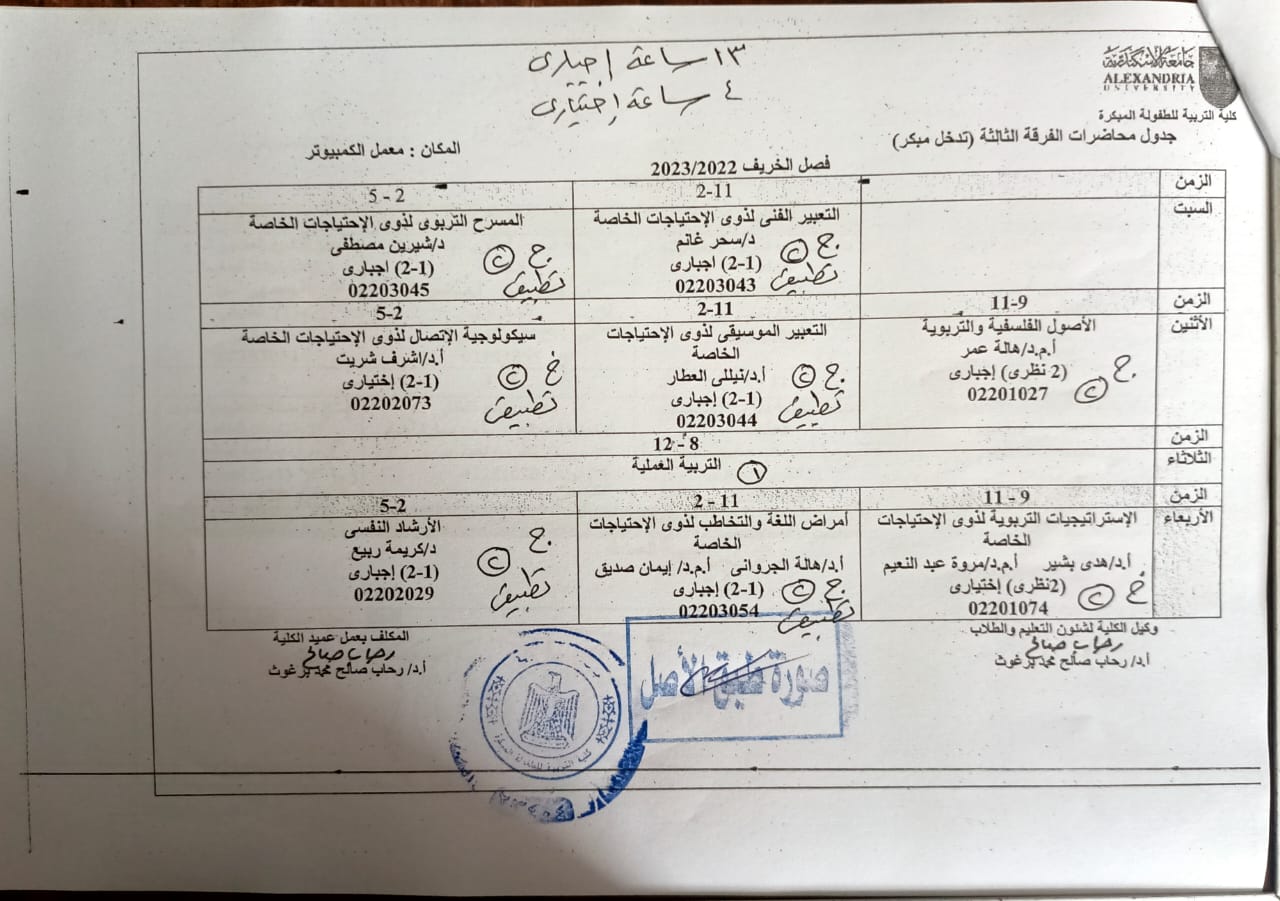 ١٣ ساعة إجبارى
٤ ساعة إختيارى
جامعة الإسكندرية
ALEXANDRIA
UNIVERSITY
كلية التربية للطفولة المبكرة
جدول محاضرات الفرقة الثالثة (تدخل مبكر)
المكان : معمل الكمبيوتر
فصل الخريف 2023/2022
الزمن
2-11
5 - 2
السبت
التعبير الفنى لذوى الإحتياجات الخاصة
د/سحر غانم
(2-1) اجبارى
02203043
ج ©
تطبيق
المسرح التربوى لذوى الإحتياجات الخاصة
د/شيرين مصطفى
(2-1) اجبارى
02203045
ج ©
تطبيق
الزمن
11-9
2-11
5-2
الأثنين
الأصول الفلسفية والتربوية
أ.م.د/هالة عمر
(2 نظرى) إجبارى
02201027
ج ©
التعبير الموسيقى لذوى الإحتياجات
الخاصة
أ.د/نيللى العطار
(2-1) إجبارى
02203044
ج ©
تطبيق
سيكولوجية الإتصال لذوى الإحتياجات الخاصة
أ.د/اشرف شريت
(2-1) إختيارى
02202073
خ ©
تطبيق
الزمن
12 - 8
الثلاثاء
التربية العملية ①
الزمن
11 - 9
2 - 11
5-2
الأربعاء
الإستراتيجيات التربوية لذوى الإحتياجات
الخاصة
أ.د/هدى بشير أ.م.د/مروة عبد النعيم
(2نظرى) إختيارى
02201074
خ ©
أمراض اللغة والتخاطب لذوى الإحتياجات
الخاصة
أ.د/هالة الجروانى أ.م.د/ إيمان صديق
(2-1) إجبارى
02203054
ج ©
تطبيق
الأرشاد النفسى
د/كريمة ربيع
(2-1) إجبارى
02202029
ج ©
تطبيق
وكيل الكلية لشئون التعليم والطلاب
رحاب صالح
أ.د/ رحاب صالح محمد برغوث
المكلف بعمل عميد الكلية
رحاب صالح
أ.د/ رحاب صالح محمد برغوث
صورة طبق الأصل
كلية التربية للطفولة المبكرة